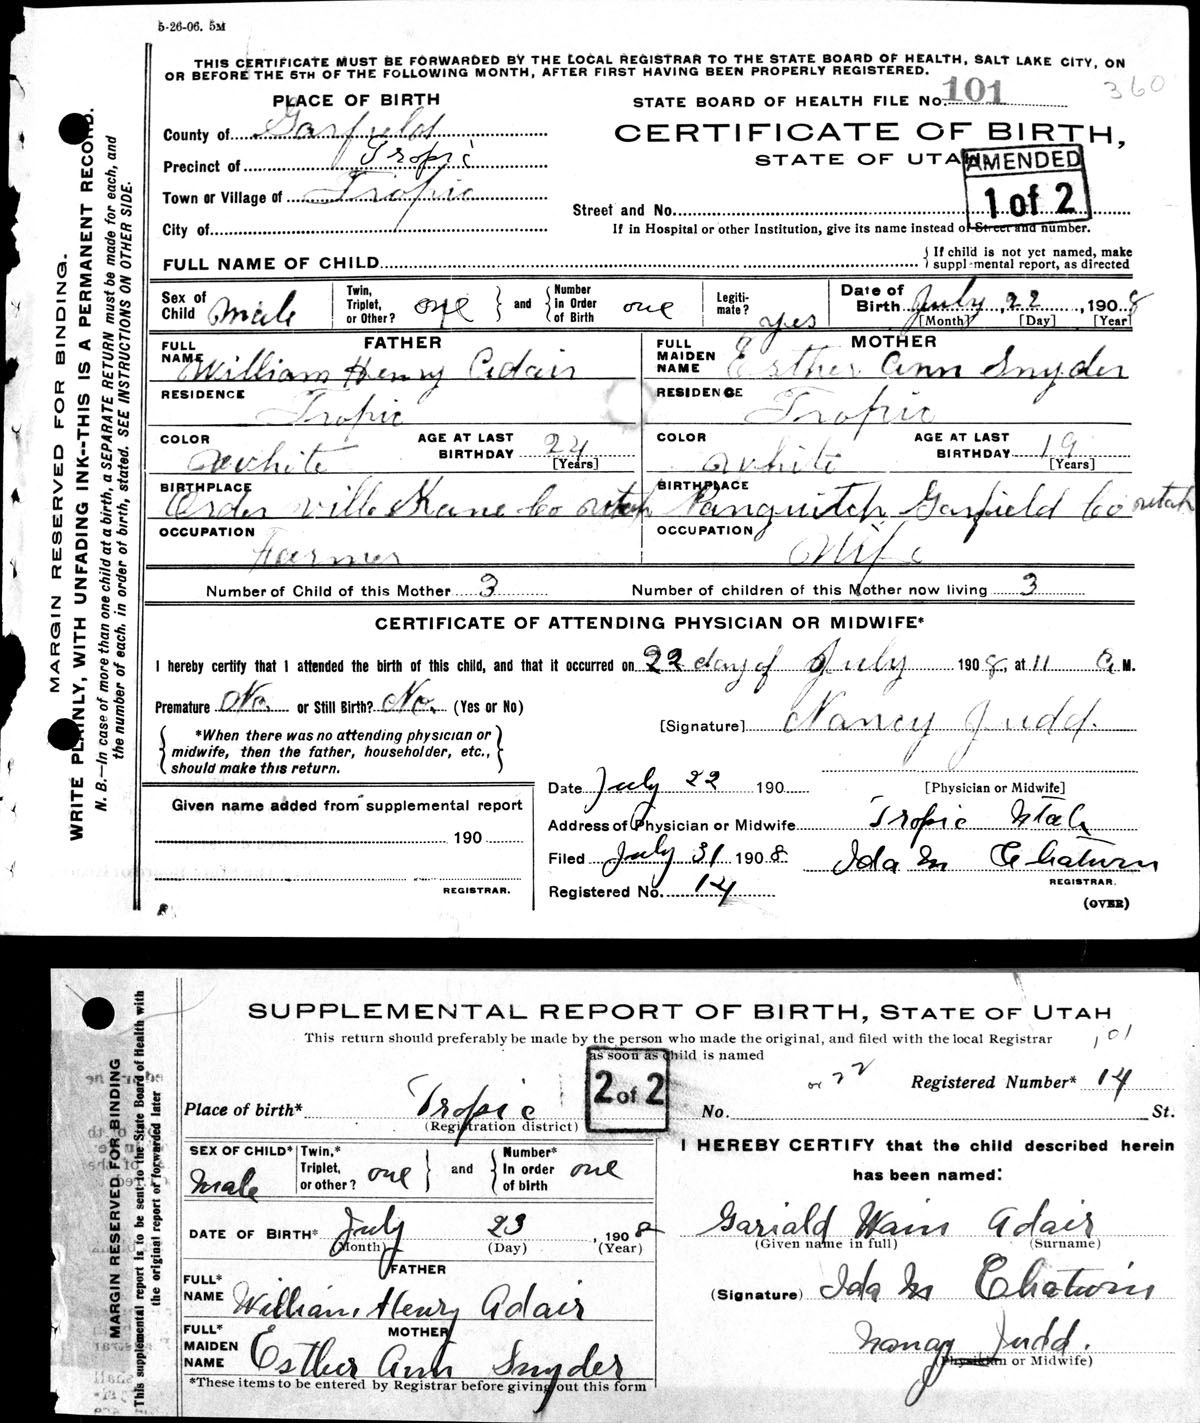 5-26-06. 5M
THIS CERTIFICATE MUST BE FORWARDED BY THE LOCAL REGISTRAR TO THE STATE BOARD OF HEALTH, SALT LAKE CITY, ON
OR BEFORE THE 5TH OF THE FOLLOWING MONTH, AFTER FIRST HAVING BEEN PROPERLY REGISTERED.
360
PLACE OF BIRTH
STATE BOARD OF HEALTH FILE No. 101
County of Garfield
CERTIFICATE OF BIRTH,
Precinct of Tropic
STATE OF UTAH
AMENDED
1 of 2
Town or Village of Tropic
Street and No.
City of
If in Hospital or other Institution, give its name instead of Street and number.
FULL NAME OF CHILD
{ If child is not yet named, make
supplemental report, as directed
Sex of Child Male
Twin, Triplet, or Other? one } and { Number in Order of Birth one
Legitimate? yes
Date of Birth July 22, 1908
[Month] [Day] [Year]
FATHER
MOTHER
FULL NAME William Henry Adair
FULL MAIDEN NAME Esther Ann Snyder
RESIDENCE Tropic
RESIDENCE Tropic
COLOR white AGE AT LAST BIRTHDAY 24 [Years]
COLOR white AGE AT LAST BIRTHDAY 19 [Years]
BIRTHPLACE Order ville Kane Co utah
BIRTHPLACE Panguitch Garfield Co utah
OCCUPATION Farmer
OCCUPATION Wife
Number of Child of this Mother 3
Number of children of this Mother now living 3
CERTIFICATE OF ATTENDING PHYSICIAN OR MIDWIFE*
I hereby certify that I attended the birth of this child, and that it occurred on 22 day of July 1908, at 11 a M.
Premature No. or Still Birth? No. (Yes or No)
[Signature] Nancy Judd.
{ *When there was no attending physician or
midwife, then the father, householder, etc.,
should make this return. }
Date July 22 190
[Physician or Midwife]
Given name added from supplemental report
Address of Physician or Midwife Tropic Utah
190
Filed July 31 1908.
Ida M Chatwin
REGISTRAR.
REGISTRAR.
Registered No. 14
(OVER)
MARGIN RESERVED FOR BINDING.
WRITE PLAINLY, WITH UNFADING INK--THIS IS A PERMANENT RECORD.
N. B.—In case of more than one child at a birth, a SEPARATE RETURN must be made for each, and
the number of each, in order of birth, stated. SEE INSTRUCTIONS ON OTHER SIDE.
SUPPLEMENTAL REPORT OF BIRTH, STATE OF UTAH
This return should preferably be made by the person who made the original, and filed with the local Registrar
as soon as child is named
101
2 of 2
Registered Number* 14
Place of birth* Tropic
(Registration district)
No. St.
SEX OF CHILD* Male
Twin,* Triplet, or other? one } and { Number* In order of birth one
I HEREBY CERTIFY that the child described herein
has been named:
DATE OF BIRTH* July 23, 1908
(Month) (Day) (Year)
Gariald Wain Adair
(Given name in full) (Surname)
FATHER
FULL* NAME William Henry Adair
(Signature) Ida M Chatwin
MOTHER
FULL* MAIDEN NAME Esther Ann Snyder
Nancy Judd.
(Physician or Midwife)
*These items to be entered by Registrar before giving out this form
MARGIN RESERVED FOR BINDING
This supplemental report is to be sent to the State Board of Health with
the original report or forwarded later